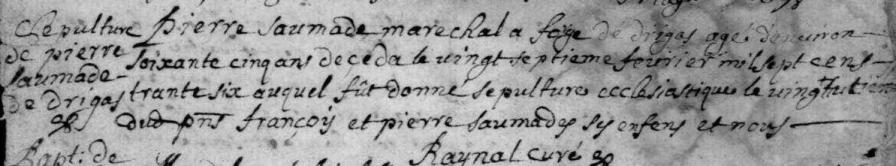 Sepulture Pierre saumade marechal a forge de drigas agé d'environ
de pierre soixante cinq ans deceda le vingt septieme fevrier mil sept cens
saumade
de drigas trante six auquel fût donné sepulture ecclesiastique le vingt huitieme
dud pnts françois et pierre saumades ses enfens et nous
Bapt. de Raynal curé